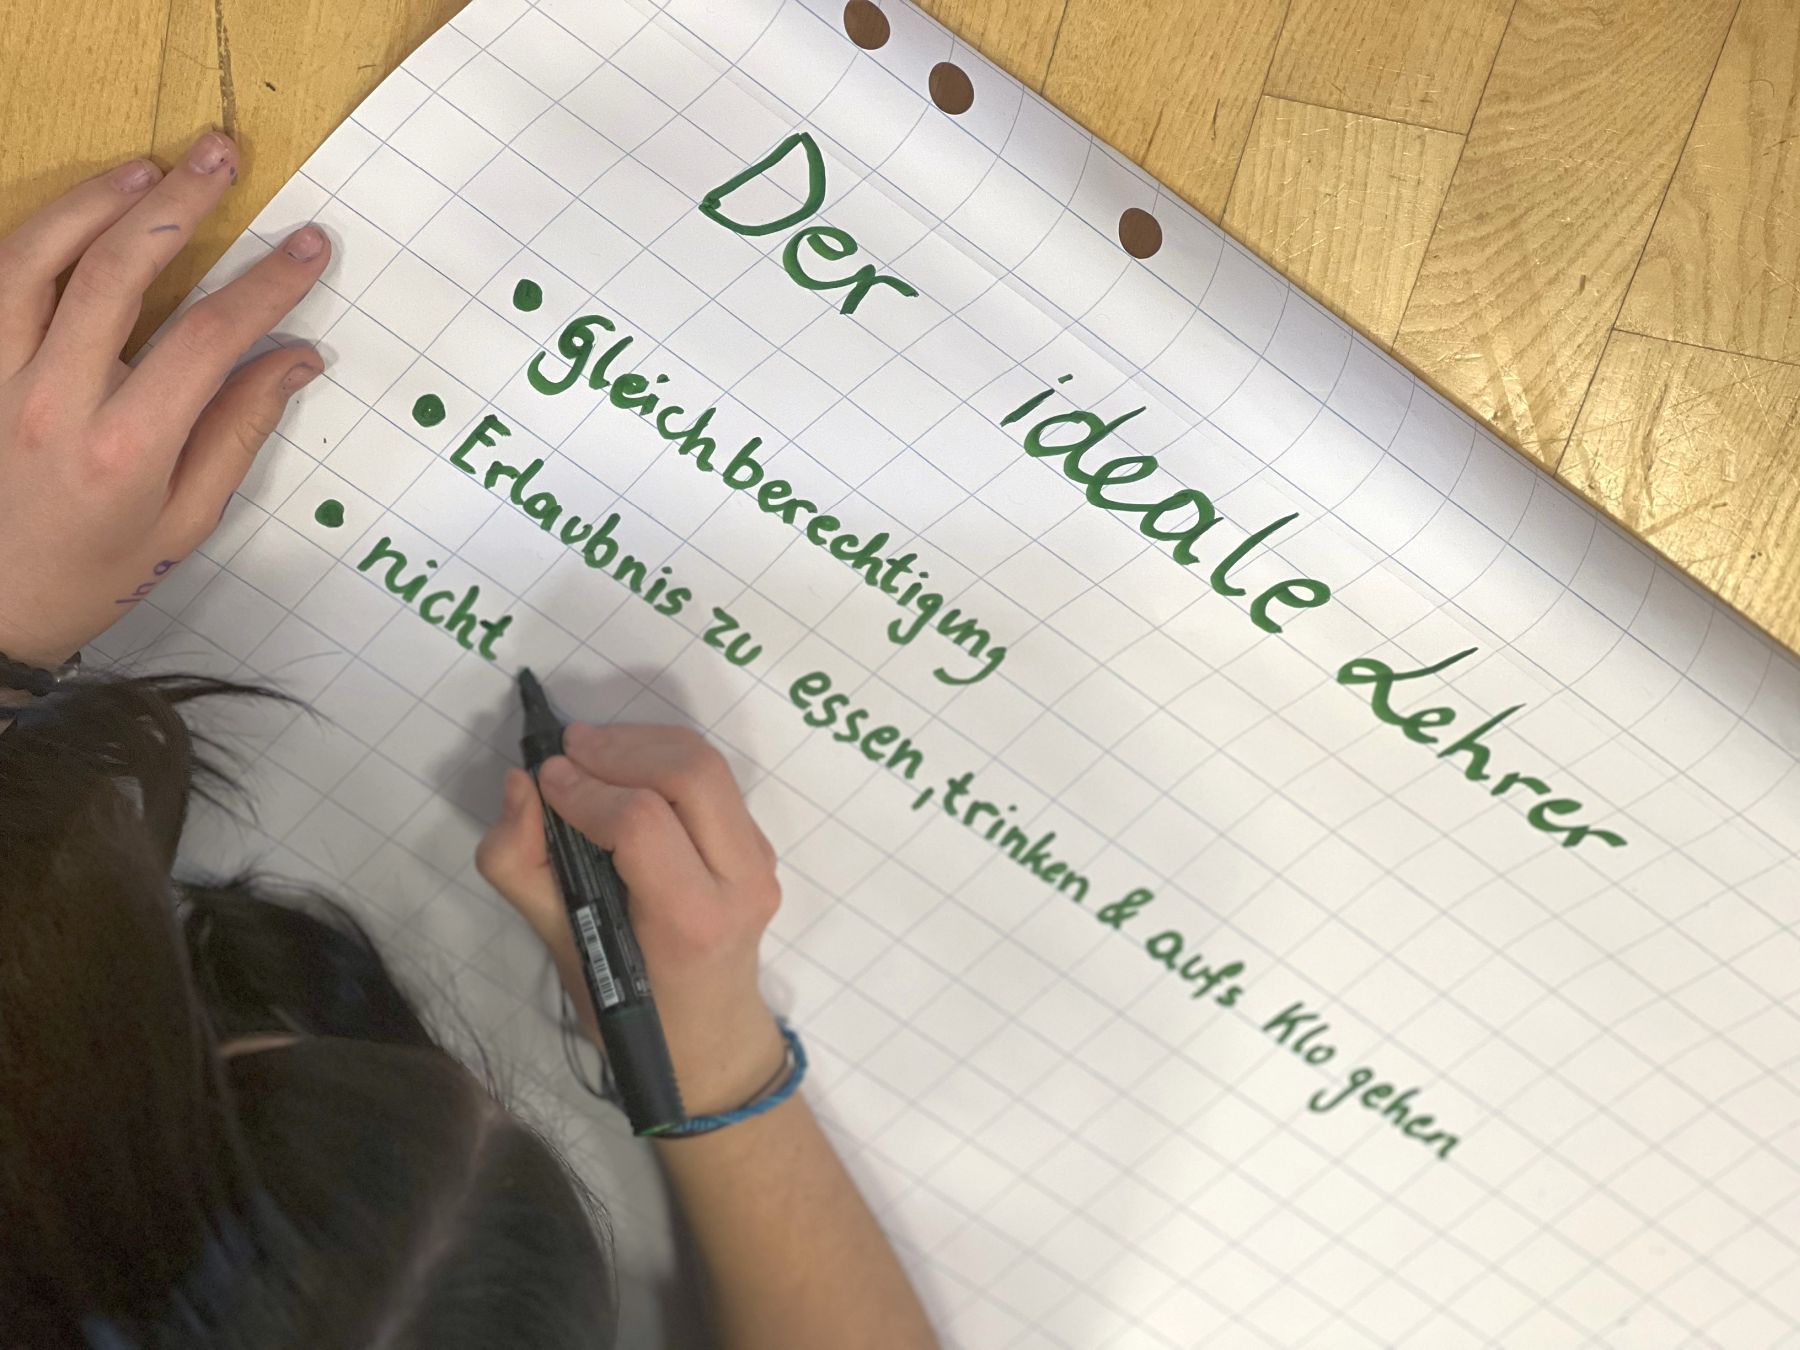 Der ideale Lehrer
• Gleichberechtigung
• Erlaubnis zu essen, trinken & aufs Klo gehen
• nicht